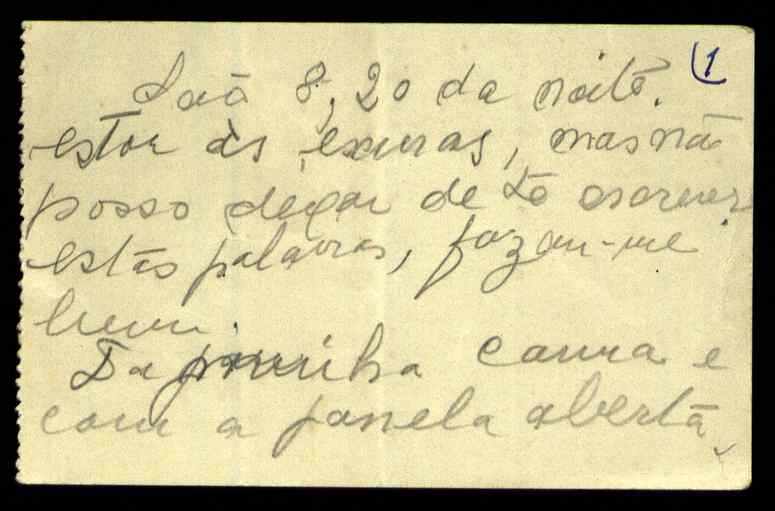 1
São 8,20 da noite.
estou ás escuras, mas não
posso deixar de te escrever
estas palavras, fazem-me
bem.
Da minha cama e
com a janela aberta